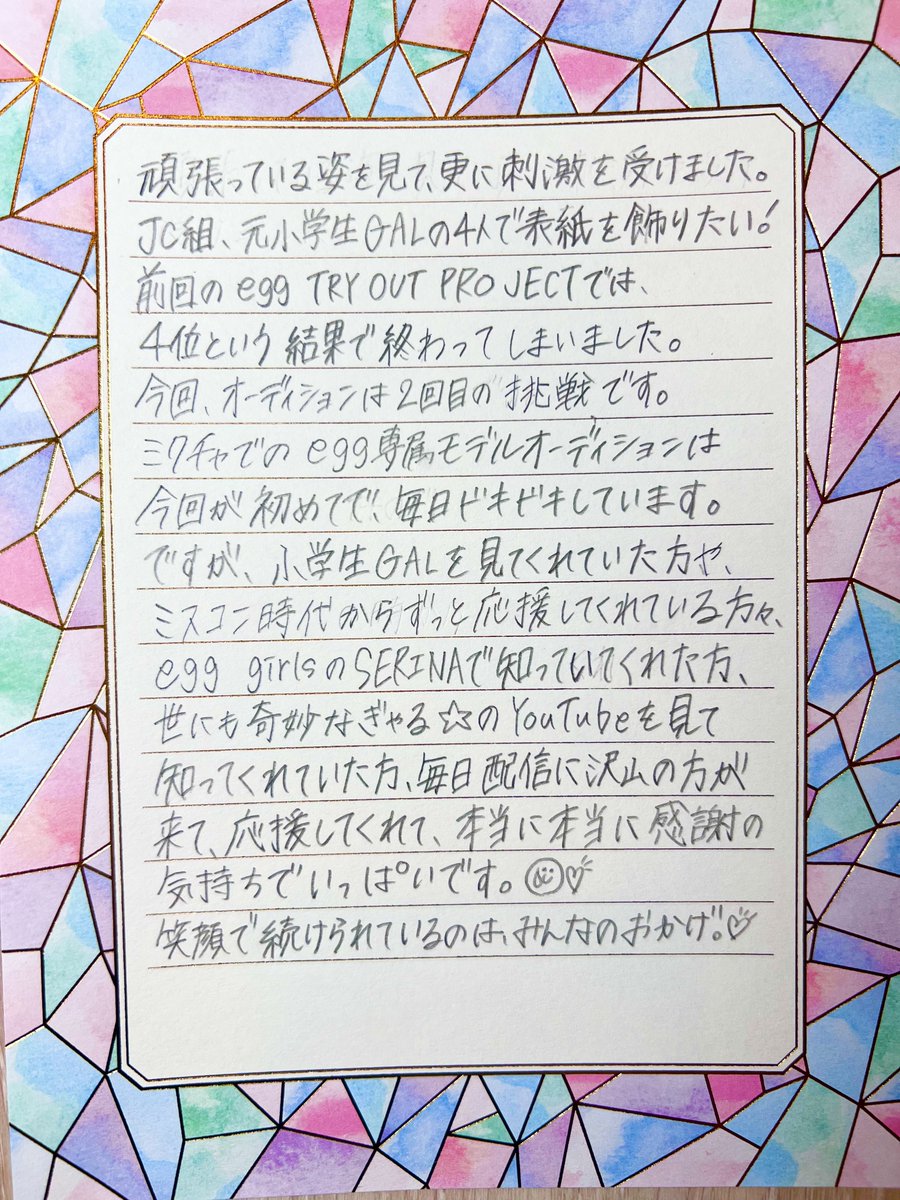 頑張っている姿を見て、更に刺激を受けました。
JC組、元小学生GALの4人で表紙を飾りたい!
前回のegg TRY OUT PROJECTでは、
4位という結果で終わってしまいました。
今回、オーディションは2回目の挑戦です。
ミクチャでのegg専属モデルオーディションは
今回が初めてで、毎日ドキドキしています。
ですが、小学生GALを見てくれていた方や、
ミスコン時代からずっと応援してくれている方々、
egg girlsのSERINAで知っていてくれた方、
世にも奇妙なぎゃる☆のYouTubeを見て
知ってくれていた方、毎日配信に沢山の方が
来て、応援してくれて、本当に本当に感謝の
気持ちでいっぱいです。☺♡
笑顔で続けられているのは、みんなのおかげ。♡